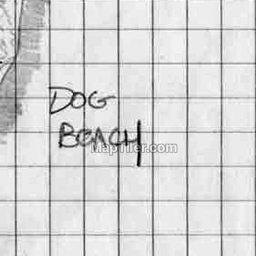 DOG
BEACH
MapTiler.com